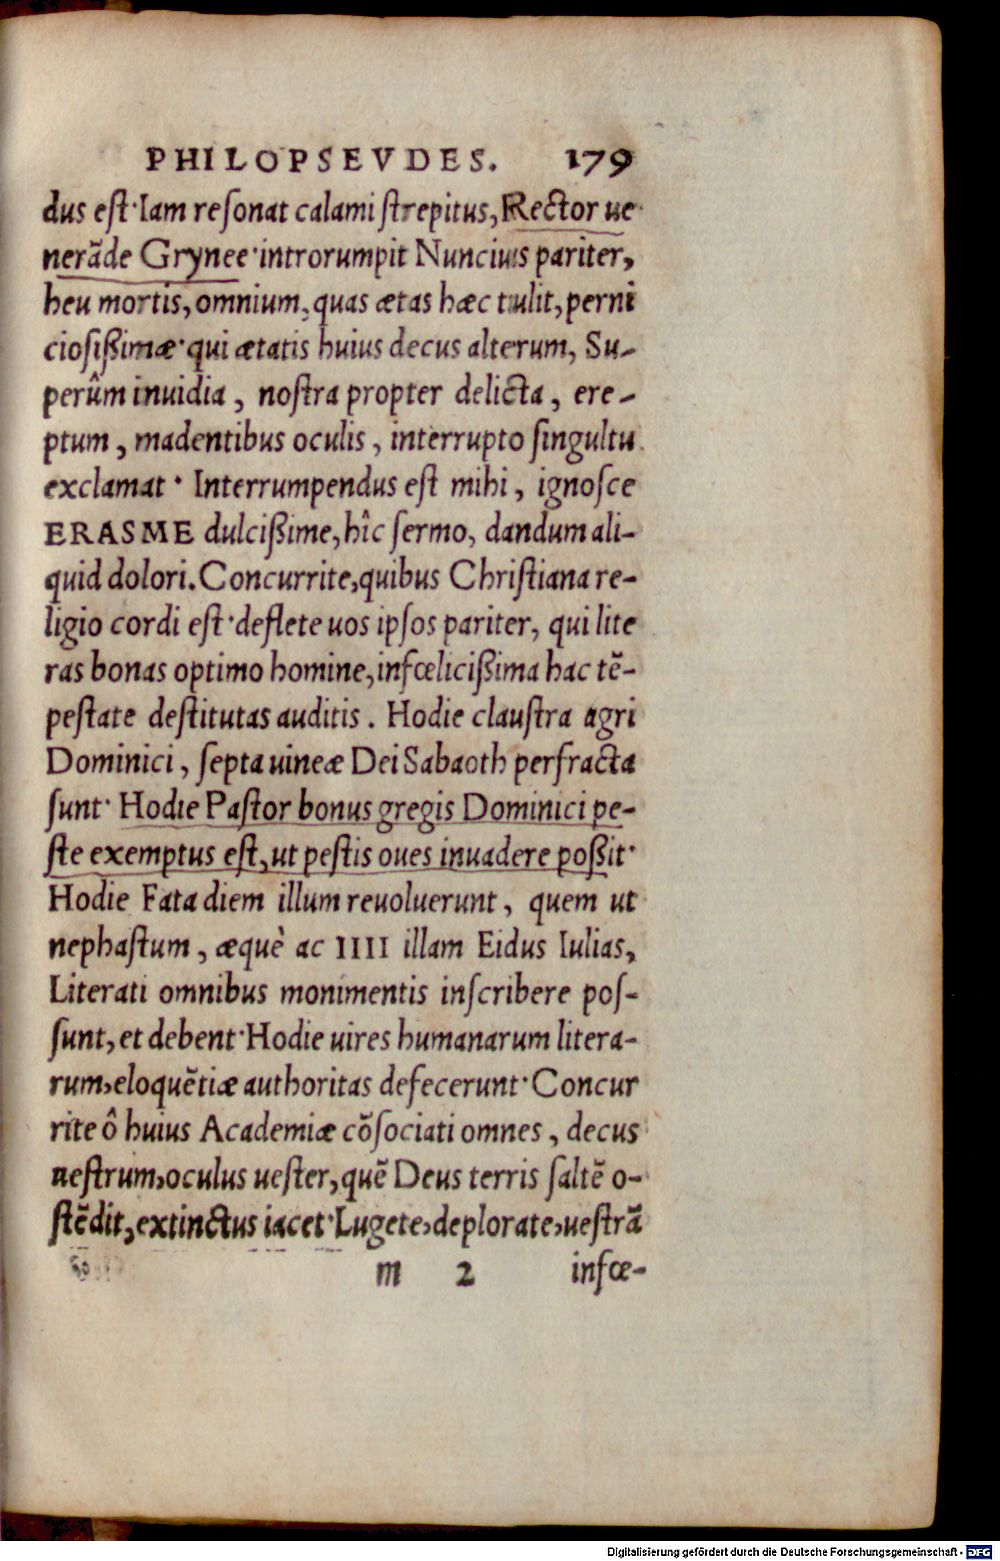 PHILOPSEVDES. 179
dus eſt·Iam reſonat calami ſtrepitus, Rector ue
nerãde Grynee·introrumpit Nuncius pariter,
heu mortis, omnium, quas ætas hæc tulit, perni
cioſißimæ·qui ætatis huius decus alterum, Su-
perûm inuidia, noſtra propter delicta, ere-
ptum, madentibus oculis, interrupto ſingultu
exclamat· Interrumpendus eſt mihi, ignoſce
ERASME dulcißime, hîc ſermo, dandum ali-
quid dolori. Concurrite, quibus Chriſtiana re-
ligio cordi eſt·deflete uos ipſos pariter, qui lite
ras bonas optimo homine, infœlicißima hac tẽ-
peſtate deſtitutas auditis. Hodie clauſtra agri
Dominici, ſepta uineæ Dei Sabaoth perfracta
ſunt· Hodie Paſtor bonus gregis Dominici pe-
ſte exemptus eſt, ut peſtis oues inuadere poßit·
Hodie Fata diem illum reuoluerunt, quem ut
nephaſtum, æquè ac IIII illam Eidus Iulias,
Literati omnibus monimentis inſcribere poſ-
ſunt, et debent·Hodie uires humanarum litera-
rum, eloquẽtiæ authoritas defecerunt·Concur
rite ô huius Academiæ cõſociati omnes, decus
ueſtrum, oculus ueſter, quẽ Deus terris ſaltẽ o-
ſtẽdit, extinctus iacet·Lugete, deplorate, ueſtrã
m 2 infœ-
Digitalisierung gefördert durch die Deutsche Forschungsgemeinschaft - DFG